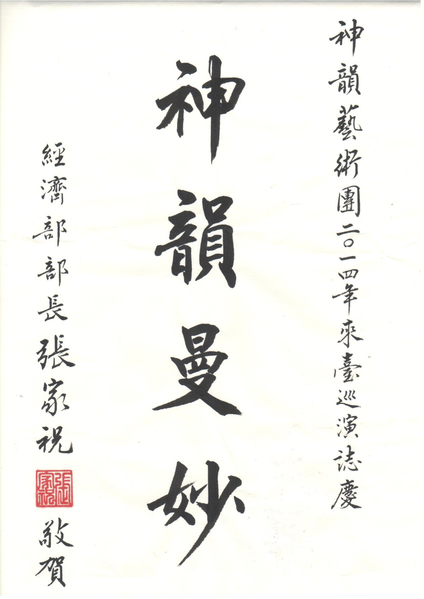 神韻藝術團二〇一四年來臺巡演誌慶
神韻曼妙
經濟部部長張家祝
張家祝
敬賀